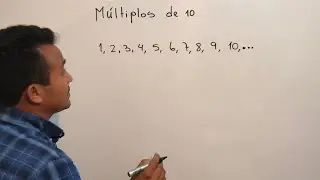 Múltiplos de 10
1, 2, 3, 4, 5, 6, 7, 8, 9, 10,...